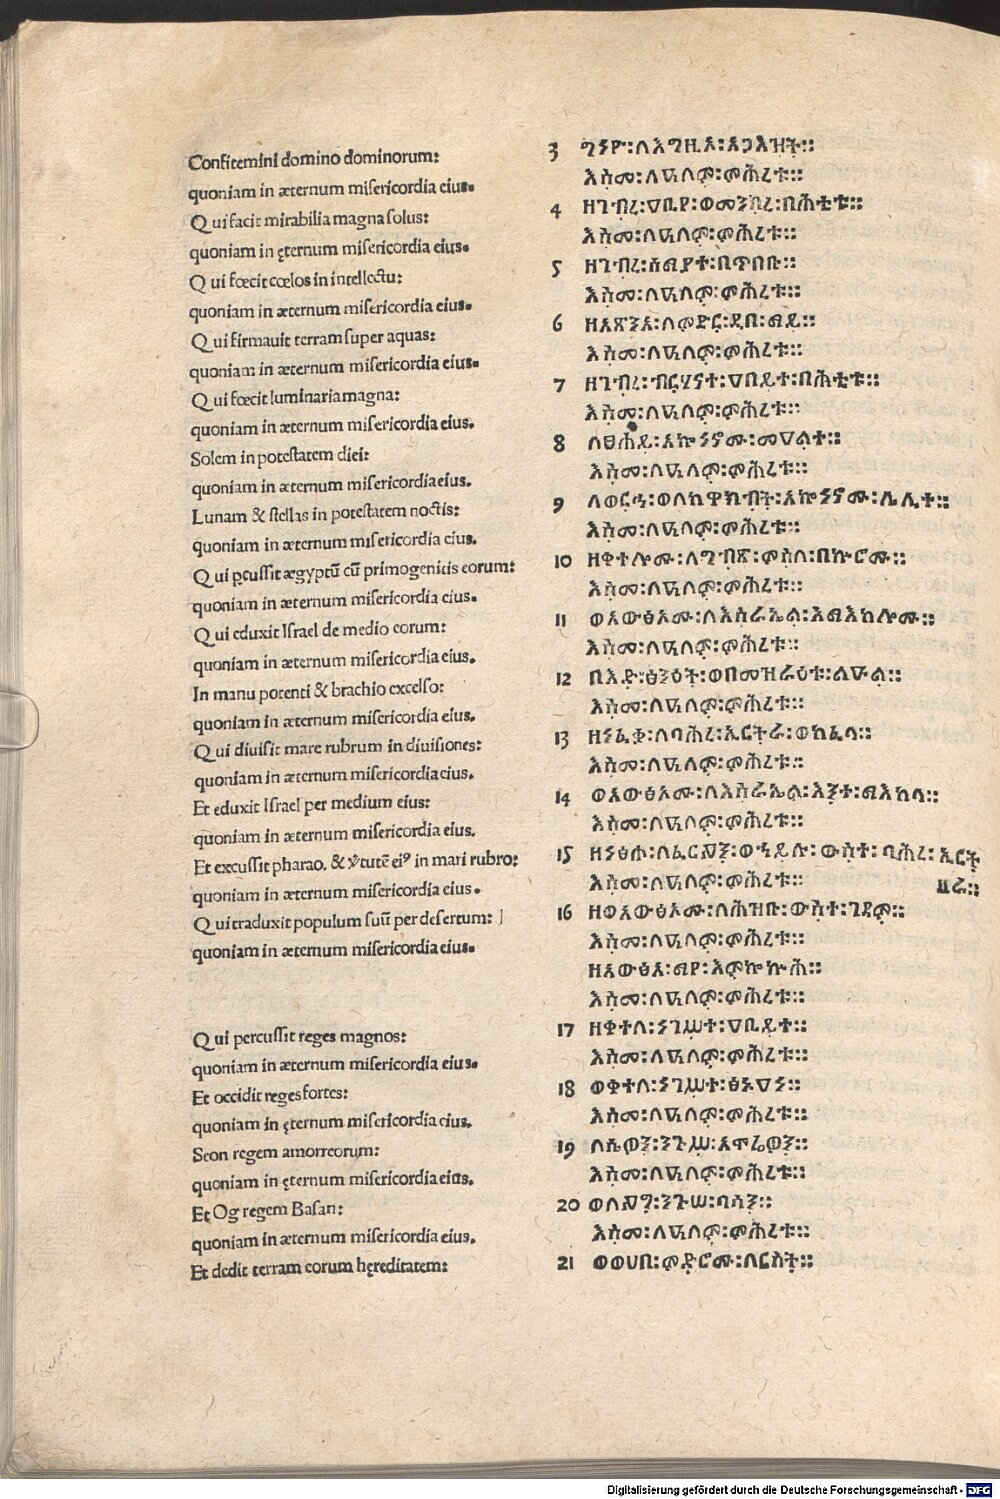 Confitemini domino dominorum:
quoniam in æternum misericordia eius.
Qui facit mirabilia magna solus:
quoniam in ęternum misericordia eius.
Qui fœcit cœlos in intellectu:
quoniam in æternum misericordia eius.
Qui firmauit terram super aquas:
quoniam in æternum misericordia eius.
Qui fœcit luminaria magna:
quoniam in æternum misericordia eius.
Solem in potestatem diei:
quoniam in æternum misericordia eius.
Lunam & stellas in potestatem noctis:
quoniam in æternum misericordia eius.
Qui ꝑcussit ægyptū cū primogenitis eorum:
quoniam in æternum misericordia eius.
Qui eduxit Israel de medio eorum:
quoniam in æternum misericordia eius.
In manu potenti & brachio excelso:
quoniam in æternum misericordia eius.
Qui diuisit mare rubrum in diuisiones:
quoniam in æternum misericordia eius.
Et eduxit Israel per medium eius:
quoniam in æternum misericordia eius.
Et excussit pharao. & v̄tutē eiꝰ in mari rubro:
quoniam in æternum misericordia eius.
Qui traduxit populum suū per desertum:
quoniam in æternum misericordia eius.
Qui percussit reges magnos:
quoniam in æternum misericordia eius.
Et occidit reges fortes:
quoniam in ęternum misericordia eius.
Seon regem amorreorum:
quoniam in ęternum misericordia eius.
Et Og regem Basan:
quoniam in æternum misericordia eius.
Et dedit terram eorum hęreditatem:
3 ግነዩ፡ለእግዚአ፡አጋእዝት።
እስመ፡ለዓለም፡ምሕረቱ።
4 ዘገብረ፡ዐቢየ፡ወመንክረ፡በሕቲቱ።
እስመ፡ለዓለም፡ምሕረቱ።
5 ዘገብረ፡ሰማያተ፡በጥበቡ።
እስመ፡ለዓለም፡ምሕረቱ።
6 ዘአጽንአ፡ለምድር፡ዲበ፡ማይ።
እስመ፡ለዓለም፡ምሕረቱ።
7 ዘገብረ፡ብርሃናተ፡ዐበይተ፡በሕቲቱ።
እስመ፡ለዓለም፡ምሕረቱ።
8 ለፀሐይ፡አኰነኖሙ፡መዐልተ።
እስመ፡ለዓለም፡ምሕረቱ።
9 ለወርኅ፡ወለከዋክብት፡አኰነኖሙ፡ሌሊተ።
እስመ፡ለዓለም፡ምሕረቱ።
10 ዘቀተሎሙ፡ለግብጽ፡ምስለ፡በኵሮሙ።
እስመ፡ለዓለም፡ምሕረቱ።
11 ወአውፅኦሙ፡ለእስራኤል፡እማእከሎሙ።
እስመ፡ለዓለም፡ምሕረቱ።
12 በእድ፡ፅንዕት፡ወበመዝራዕቱ፡ልዑል።
እስመ፡ለዓለም፡ምሕረቱ።
13 ዘነፈቃ፡ለባሕረ፡ኤርትራ፡ወከፈላ።
እስመ፡ለዓለም፡ምሕረቱ።
14 ወአውፅኦሙ፡ለእስራኤል፡እንተ፡ማእከላ።
እስመ፡ለዓለም፡ምሕረቱ።
15 ዘነፅሖ፡ለፈርዖን፡ወኀይሉ፡ውስተ፡ባሕረ፡ኤርት
እስመ፡ለዓለም፡ምሕረቱ። ራ።
16 ዘወአውፅኦሙ፡ለሕዝቡ፡ውስተ፡ገዳም።
እስመ፡ለዓለም፡ምሕረቱ።
ዘአውፅአ፡ማየ፡እምኰኵሕ።
እስመ፡ለዓለም፡ምሕረቱ።
17 ዘቀተለ፡ነገሥተ፡ዐቢይተ።
እስመ፡ለዓለም፡ምሕረቱ።
18 ወቀተለ፡ነገሥተ፡ፅኑዐነ።
እስመ፡ለዓለም፡ምሕረቱ።
19 ለሴዎን፡ንጉሥ፡አሞሬዎን።
እስመ፡ለዓለም፡ምሕረቱ።
20 ወለዖግ፡ንጉሠ፡ባሳን።
እስመ፡ለዓለም፡ምሕረቱ።
21 ወወሀበ፡ምድሮሙ፡ለርስት።
Digitalisierung gefördert durch die Deutsche Forschungsgemeinschaft - DFG